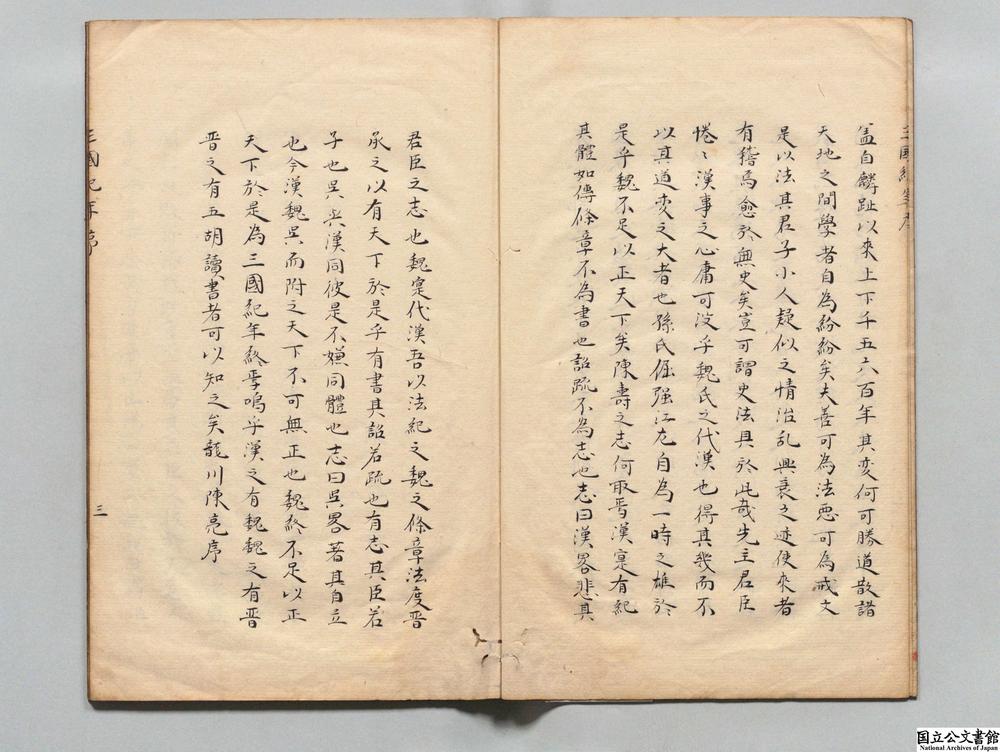 三國紀年序
盖自麟趾以來上下千五六百年其変何可勝道散諸
天地之間學者自為紛紛矣夫善可為法悪可為戒文
是以法其君子小人疑似之情治乱興衰之迹使來者
有稽焉愈於無史矣豈可謂史法具於此哉先主君臣
惓〻漢事之心庸可没乎魏氏之代漢也得其幾而不
以其道変之大者也孫氏倔强江左自為一時之雄於
是乎魏不足以正天下矣陳壽之志何取焉漢寔有紀
其體如傳條章不為書也詔疏不為志也志曰漢畧悲其
君臣之志也魏寔代漢吾以法紀之魏之條章法度晋
承之以有天下於是乎有書其詔若疏也有志其臣若
子也吴与漢同彼是不嫌同體也志曰吴畧著其自立
也今漢魏吴而附之天下不可無正也魏終不足以正
天下於是為三國紀年終焉嗚乎漢之有魏魏之有晋
晋之有五胡讀書者可以知之矣龍川陳亮序
三國紀年序
三
国立公文書館
National Archives of Japan